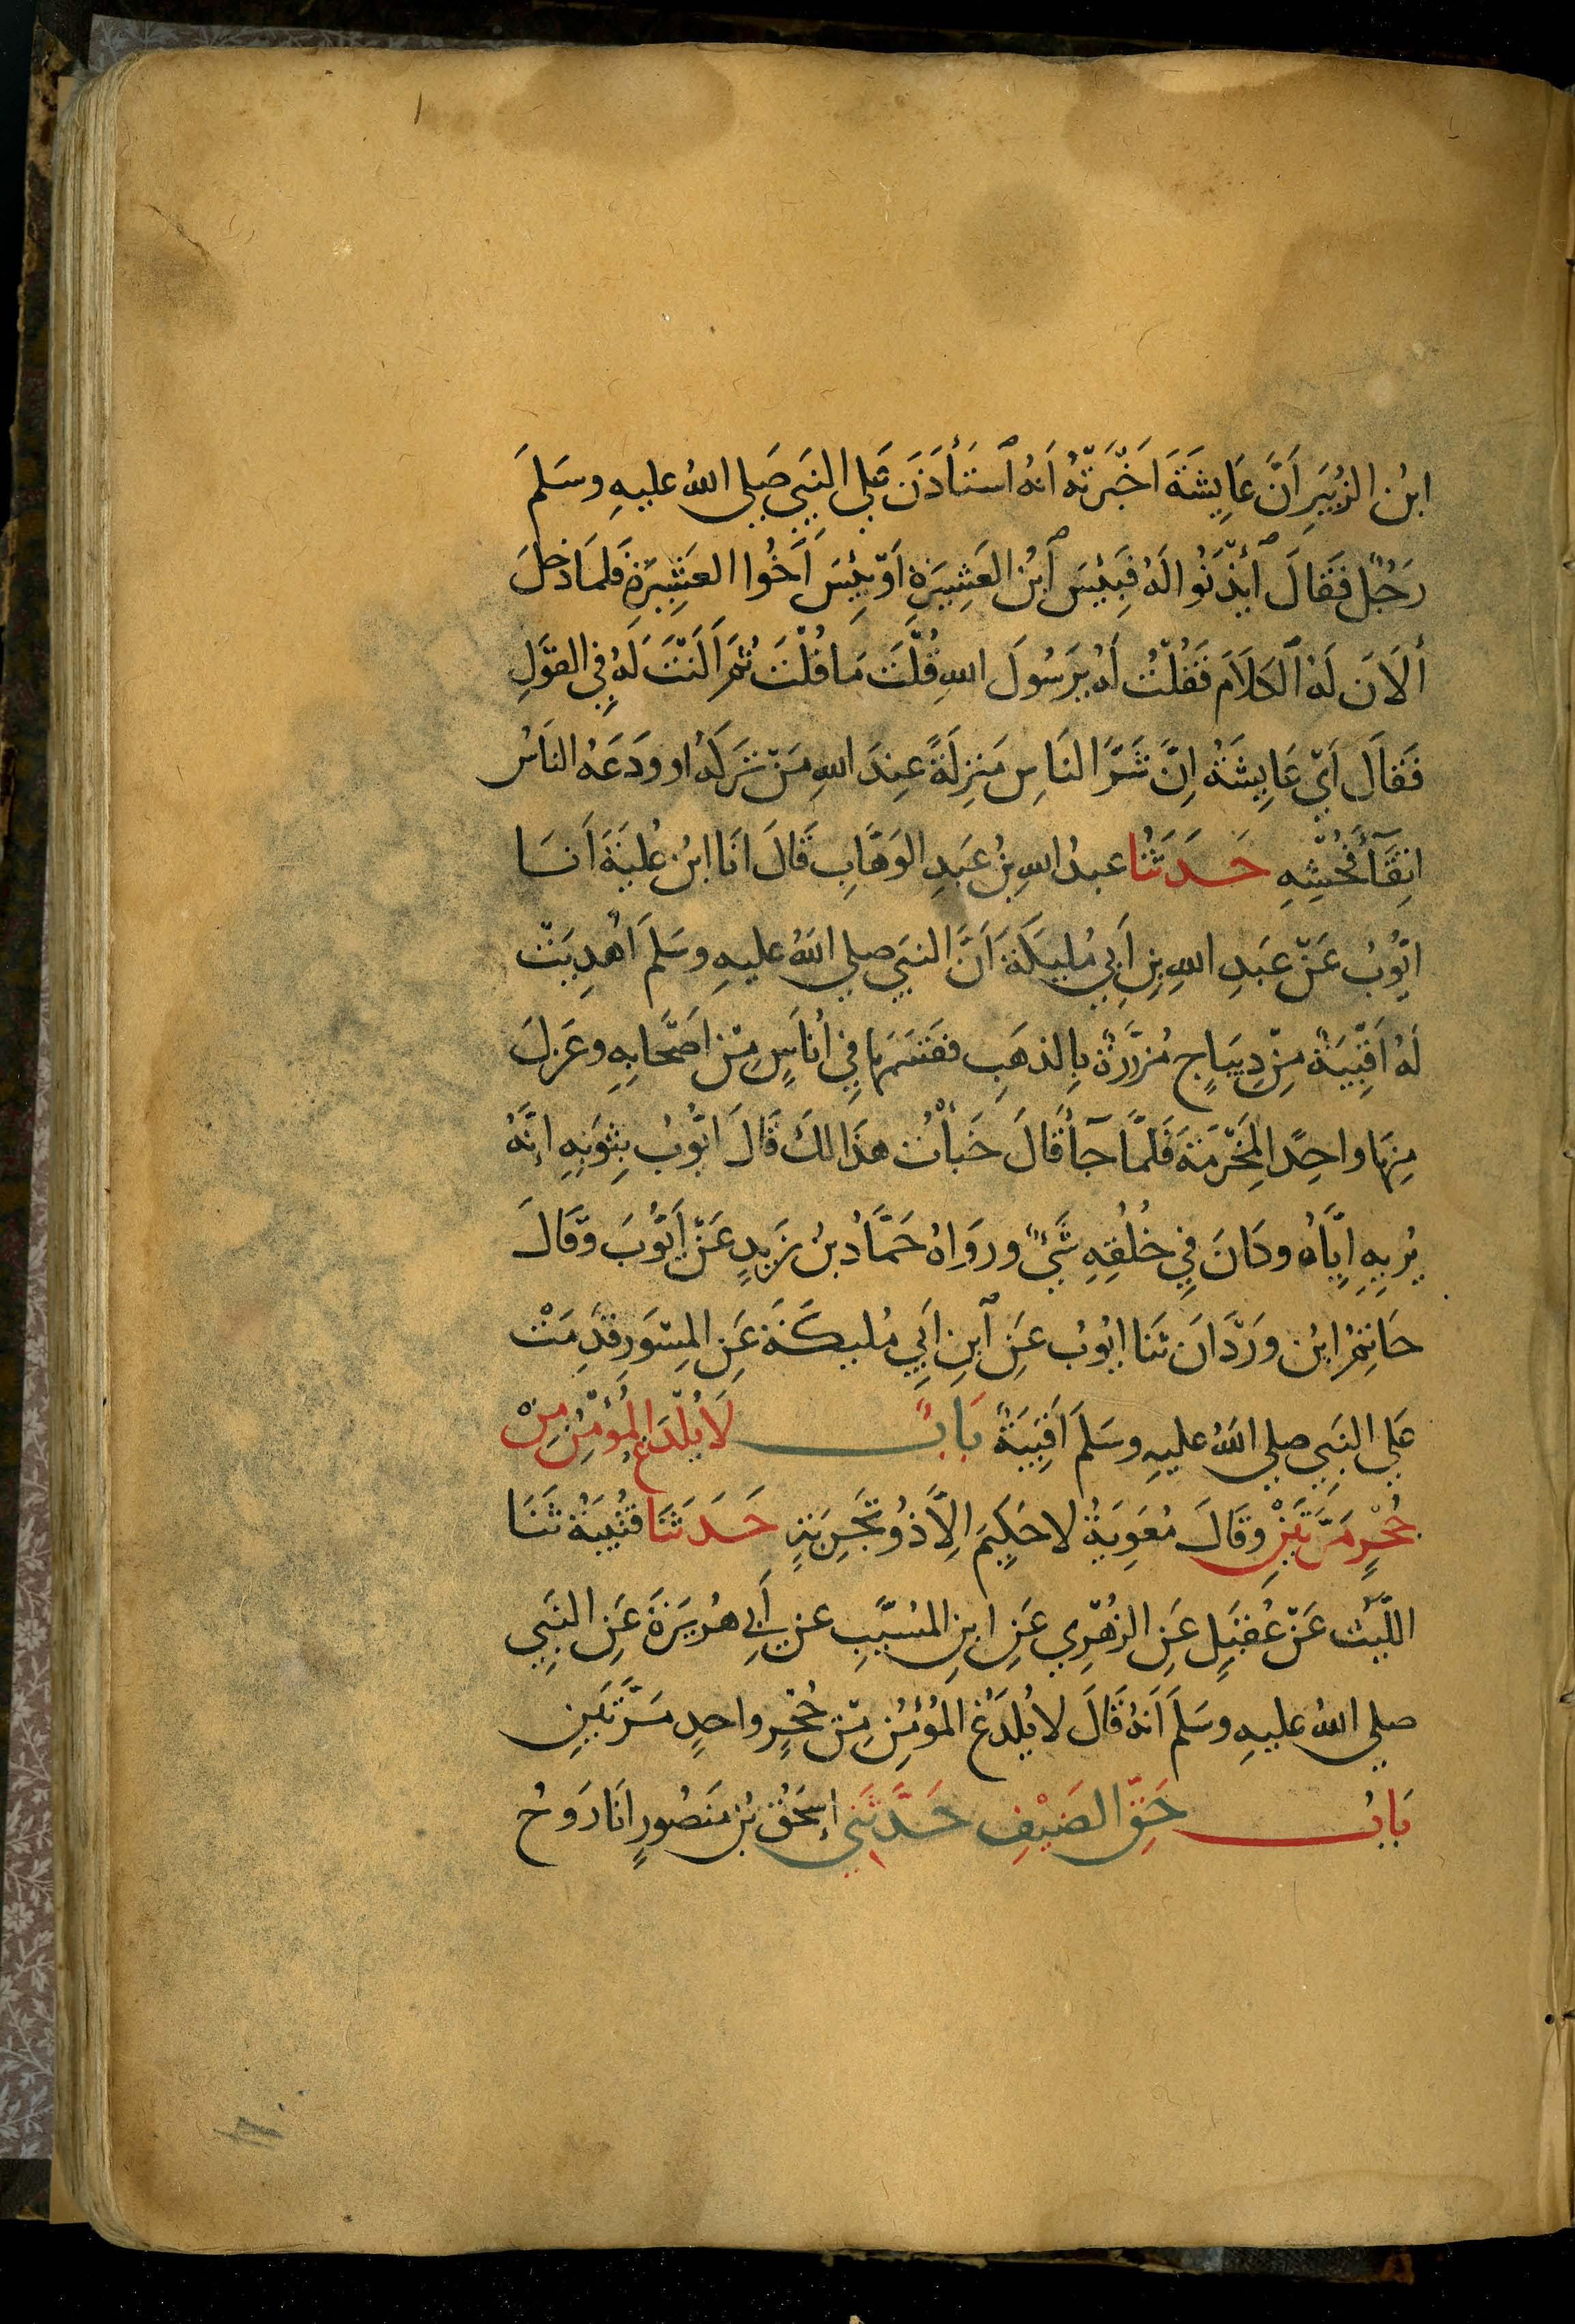 ابنُ الزُبَيرِ أَنَّ عَايِشَةَ اَخْبَرَتْهُ اَنهُ ٱستَأذَنَ عَلي النَبِي صَلي اللهُ عليهِ وسَلمَ
رَجُلٌ فَقَالَ ٱئذَنُوا لَهُ فَبِئسَ ٱبنُ العَشِيرَةِ اَوْ بِئسَ اَخُوا العَشِيرَةِ فَلمَا دَخلَ
أَلَانَ لَهُ ٱلكلَامَ فَقُلْتُ لَهُ يَرَسُولَ اللهِ قُلْتَ مَا قُلْتَ ثُمَ اَلَنْتَ لَهُ فِي القَوْلِ
فَقَالَ اَيْ عَايِشَةُ اِنَّ شَرَّ النَاسِ مَنزِلَةً عِندَ اللهِ مَنْ تَركَهُ او وَدَعَهُ النَاسُ
اتِقَآءَ فُحْشِهِ حَدَثَنَا عبدُ اللهِ بنُ عَبدِ الوَهَّابِ قَالَ انَا ابنُ عُليَةَ اَنَا
ايُّوبُ عَنْ عَبدِ اللهِ بنِ اَبِي مُليكَةَ اَنَّ النبَيَ صلي اللهُ عليهِ وسَلمَ اُهدِيَتْ
لَهُ اَقْبِيَةٌ مِنْ دِيبَاجٍ مُزَرَّرَةٌ بِالذهَبِ فقَسَمَهَا فِي اُنَاسٍ مِنْ اَصْحَابِهِ وعَزلَ
مِنهَا واحِدًا لِمَخْرَمَةَ فَلمَّا جَآءَ قَالَ خَبأْتُ هذَا لكَ قَالَ ايُّوبُ بِثوبهِ انَّهُ
يُرِيهِ اِيَّاهُ وكَانَ فِي خُلُقِهِ شَيْءٌ ورَوَاهُ حَمَّادُ بنُ زَيدٍ عَنْ اَيُّوبَ وقَالَ
حَاتِمُ ابنُ وَرْدَانَ ثنَا ايُوبُ عَنِ ٱبنِ اَبِي مُليكَةَ عَنِ المِسْوَرِ قدِمَتْ
عَلي النبِي صلي اللهُ عليهِ وسَلمَ اَقبِيَةٌ بَابٌ لَا يُلْدَغُ المُؤْمِنُ مِنْ
جُحْرٍ مَرَّتَيْنِ وقَالَ مُعَوِيَةُ لا حَكِيمَ اِلَّا ذُو تَجْرِبَةٍ حَدَثَنَا قتُيبَةُ ثَنَا
اللَّيثُ عَنْ عُقَيلٍ عَنِ الزُهْرِي عَنِ ابنِ المُسَيَّبِ عن اَبِي هُرَيرَةَ عَنِ النَبِي
صلي اللهُ عليهِ وسَلمَ اَنهُ قَالَ لا يُلدَغُ المُؤمِنُ مِنْ جُحْرٍ واحدٍ مَرَّتَينِ
بَابُ حَقِّ الضَيْفِ حَدَّثَنِي اِسحَقُ بنُ مَنصُورٍ انَا رَوحُ